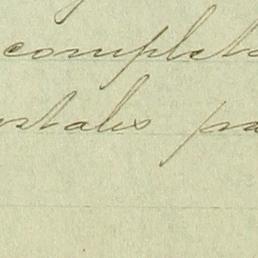 complet
stales pa